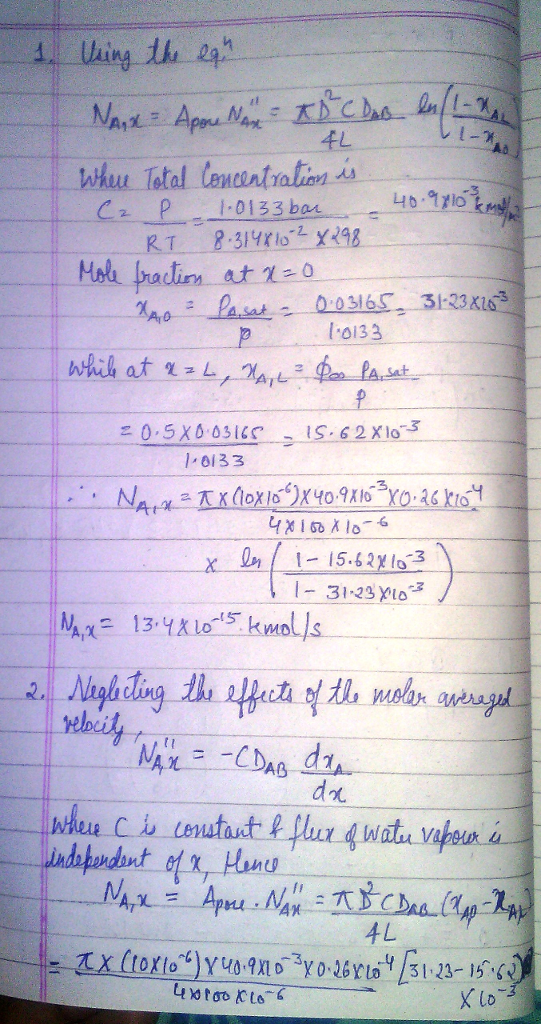 1. Using the eqⁿ
N_A,x = Apore N_Ax'' = πD²C D_AB / 4L ln (1-x_AL / 1-x_A0)
Where Total Concentration is
C = P / RT = 1.0133 bar / 8.314×10⁻² × 298 = 40.9×10⁻³ kmol/
Mole fraction at x=0
x_A,0 = P_A,sat / p = 0.03165 / 1.0133 = 31.23×10⁻³
While at x=L, x_A,L = ϕ∞ P_A,sat / p
= 0.5×0.03165 / 1.0133 = 15.62×10⁻³
∴ N_A,x = π×(10×10⁻⁶)×40.9×10⁻³×0.26×10⁻⁴ / 4×100×10⁻⁶
× ln (1-15.62×10⁻³ / 1-31.23×10⁻³)
N_A,x = 13.4×10⁻¹⁵ kmol/s
2. Neglecting the effects of the molar averaged
velocity,
N_A,x'' = -C D_AB dx_A / dx
where C is constant & flux of water vapour is
independent of x, Hence
N_A,x = Apore . N_Ax'' = πD²C D_AB / 4L (x_A0 - x_AL
= π×(10×10⁻⁶)×40.9×10⁻³×0.26×10⁻⁴ / 4×100×10⁻⁶ [31.23-15.62]
×10⁻³